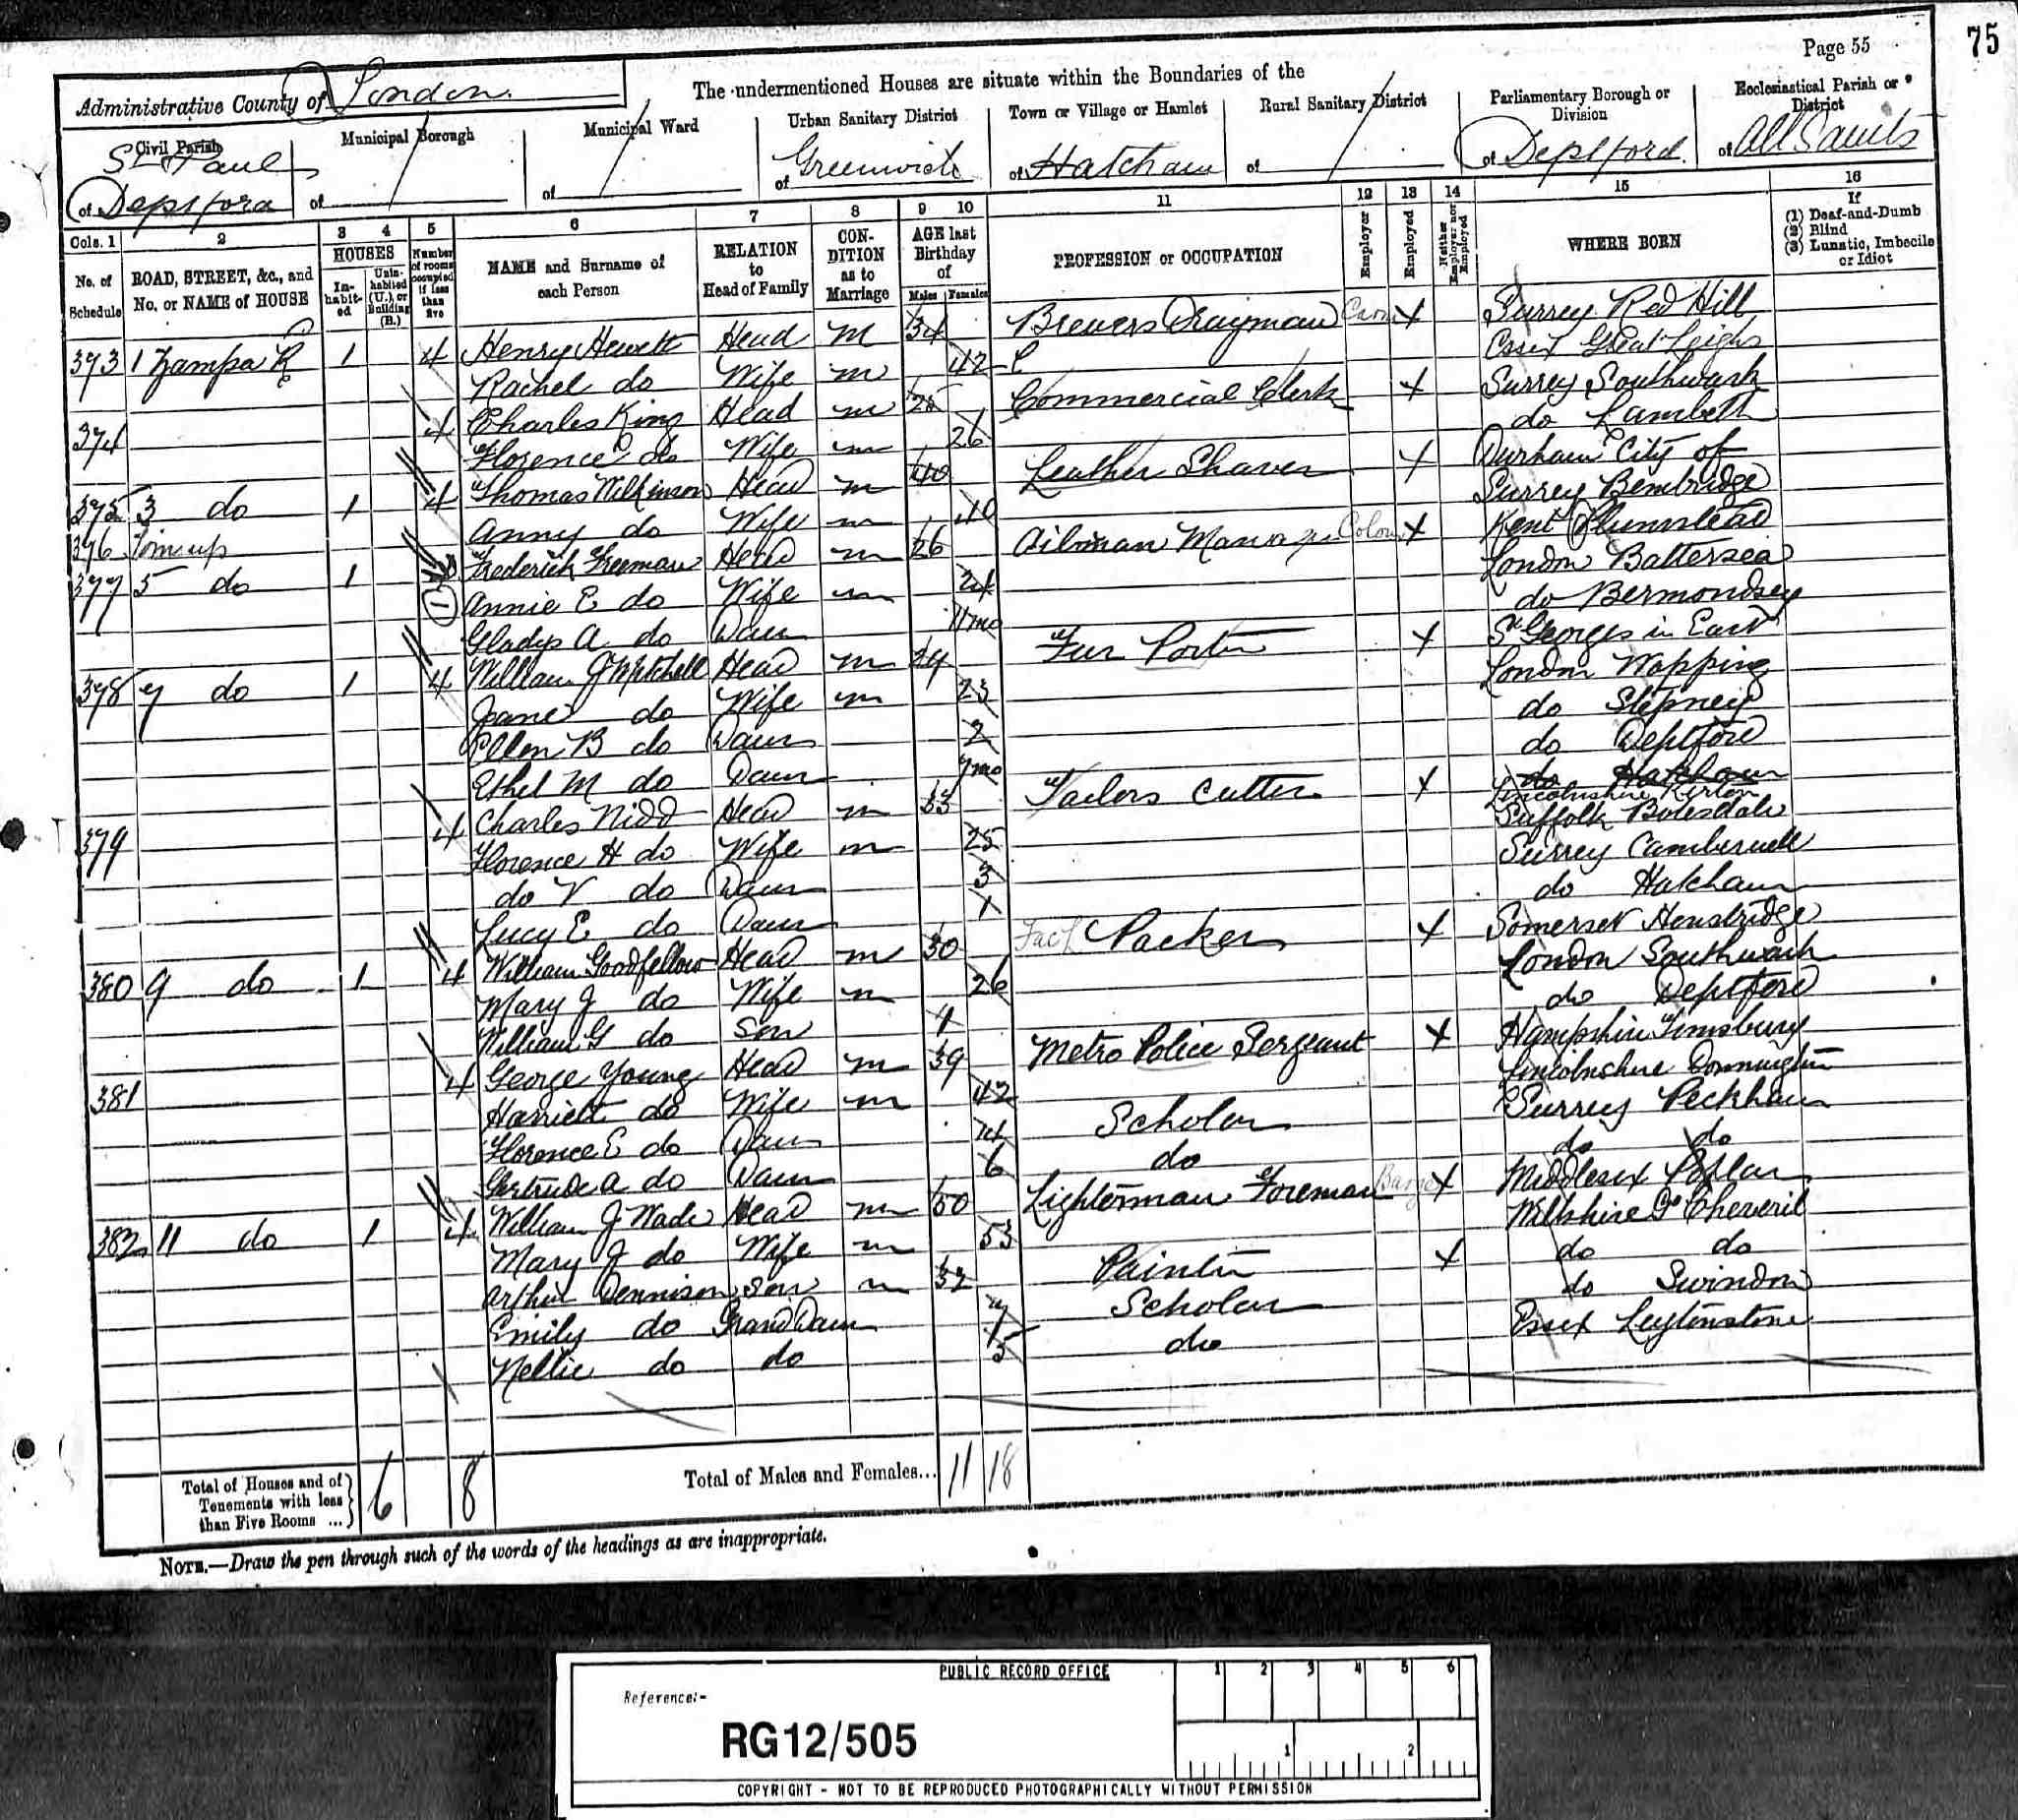 Page 55
75
Administrative County of London
The undermentioned Houses are situate within the Boundaries of the
Civil Parish
St Pauls
of Deptford
Municipal Borough
of
Municipal Ward
of
Urban Sanitary District
of Greenwich
Town or Village or Hamlet
of Hatcham
Rural Sanitary District
of
Parliamentary Borough or Division
of Deptford
Ecclesiastical Parish or District
of All Saints
Cols. 1 2 3 4 5 6 7 8 9 10 11 12 13 14 15 16
No. of Schedule
ROAD, STREET, &c., and No. or NAME of HOUSE
HOUSES
Inhabited
Uninhabited (U.), or Building (B.)
Number of rooms occupied if less than five
NAME and Surname of each Person
RELATION to Head of Family
CONDITION as to Marriage
AGE last Birthday of
Males Females
PROFESSION or OCCUPATION
Employer
Employed
Neither Employer nor Employed
WHERE BORN
If
(1) Deaf-and-Dumb
(2) Blind
(3) Lunatic, Imbecile or Idiot
373 1 Zampa R 1 4 Henry Hewett Head M 34 Brewers Drayman X Surrey Red Hill
Rachel do Wife m 42 Essex Great Leighs
374 4 Charles King Head m 28 Commercial Clerk X Surrey Southwark
Florence do Wife m 26 do Lambeth
375 3 do 1 4 Thomas Wilkinson Head m 40 Leather Shaver X Durham City of
Anny do Wife m 40 Surrey Bembridge
376
377 5 do 1 Frederick Freeman Head m 26 Oilman Manager Colour X Kent Plumstead
Annie E do Wife m 24 London Battersea
Gladys A do Daur 11mo do Bermondsey
378 7 do 1 4 William J Mitchell Head m 29 Fur Porter X St Georges in East
Jane do Wife m 23 London Wapping
Ellen B do Daur 2 do Stepney
Ethel M do Daur 7mo do Deptford
do Hatcham
379 4 Charles Nidd Head m 33 Tailors Cutter X Lincolnshire Kirton
Florence H do Wife m 25 Suffolk Botesdale
do V do Daur 3 Surrey Camberwell
Lucy E do Daur 1 do Hatcham
380 9 do 1 4 William Goodfellow Head m 30 Packer X Somerset Henstridge
Mary J do Wife m 26 London Southwark
William G do Son 1 do Deptford
381 4 George Young Head m 39 Metro Police Sergeant X Hampshire Timsbury
Harriett do Wife m 42 Lincolnshire Donnington
Florence E do Daur Scholar Surrey Peckham
Gertrude A do Daur 6 do do do
382 11 do 1 4 William J Wade Head m 50 Lighterman Foreman Barge X Middlesex Poplar
Mary J do Wife m 53 Wiltshire Gt Cheveril
Arthur Dennison Son m 32 Painter X do do
Emily do Grand Daur Scholar do Swindon
Nellie do do 5 do Essex Leytonstone
Total of Houses and of Tenements with less than Five Rooms ... 6 8
Total of Males and Females... 11 18
NOTE.—Draw the pen through such of the words of the headings as are inappropriate.
PUBLIC RECORD OFFICE
1 2 3 4 5 6
Reference:-
RG12/505
1 2
COPYRIGHT - NOT TO BE REPRODUCED PHOTOGRAPHICALLY WITHOUT PERMISSION